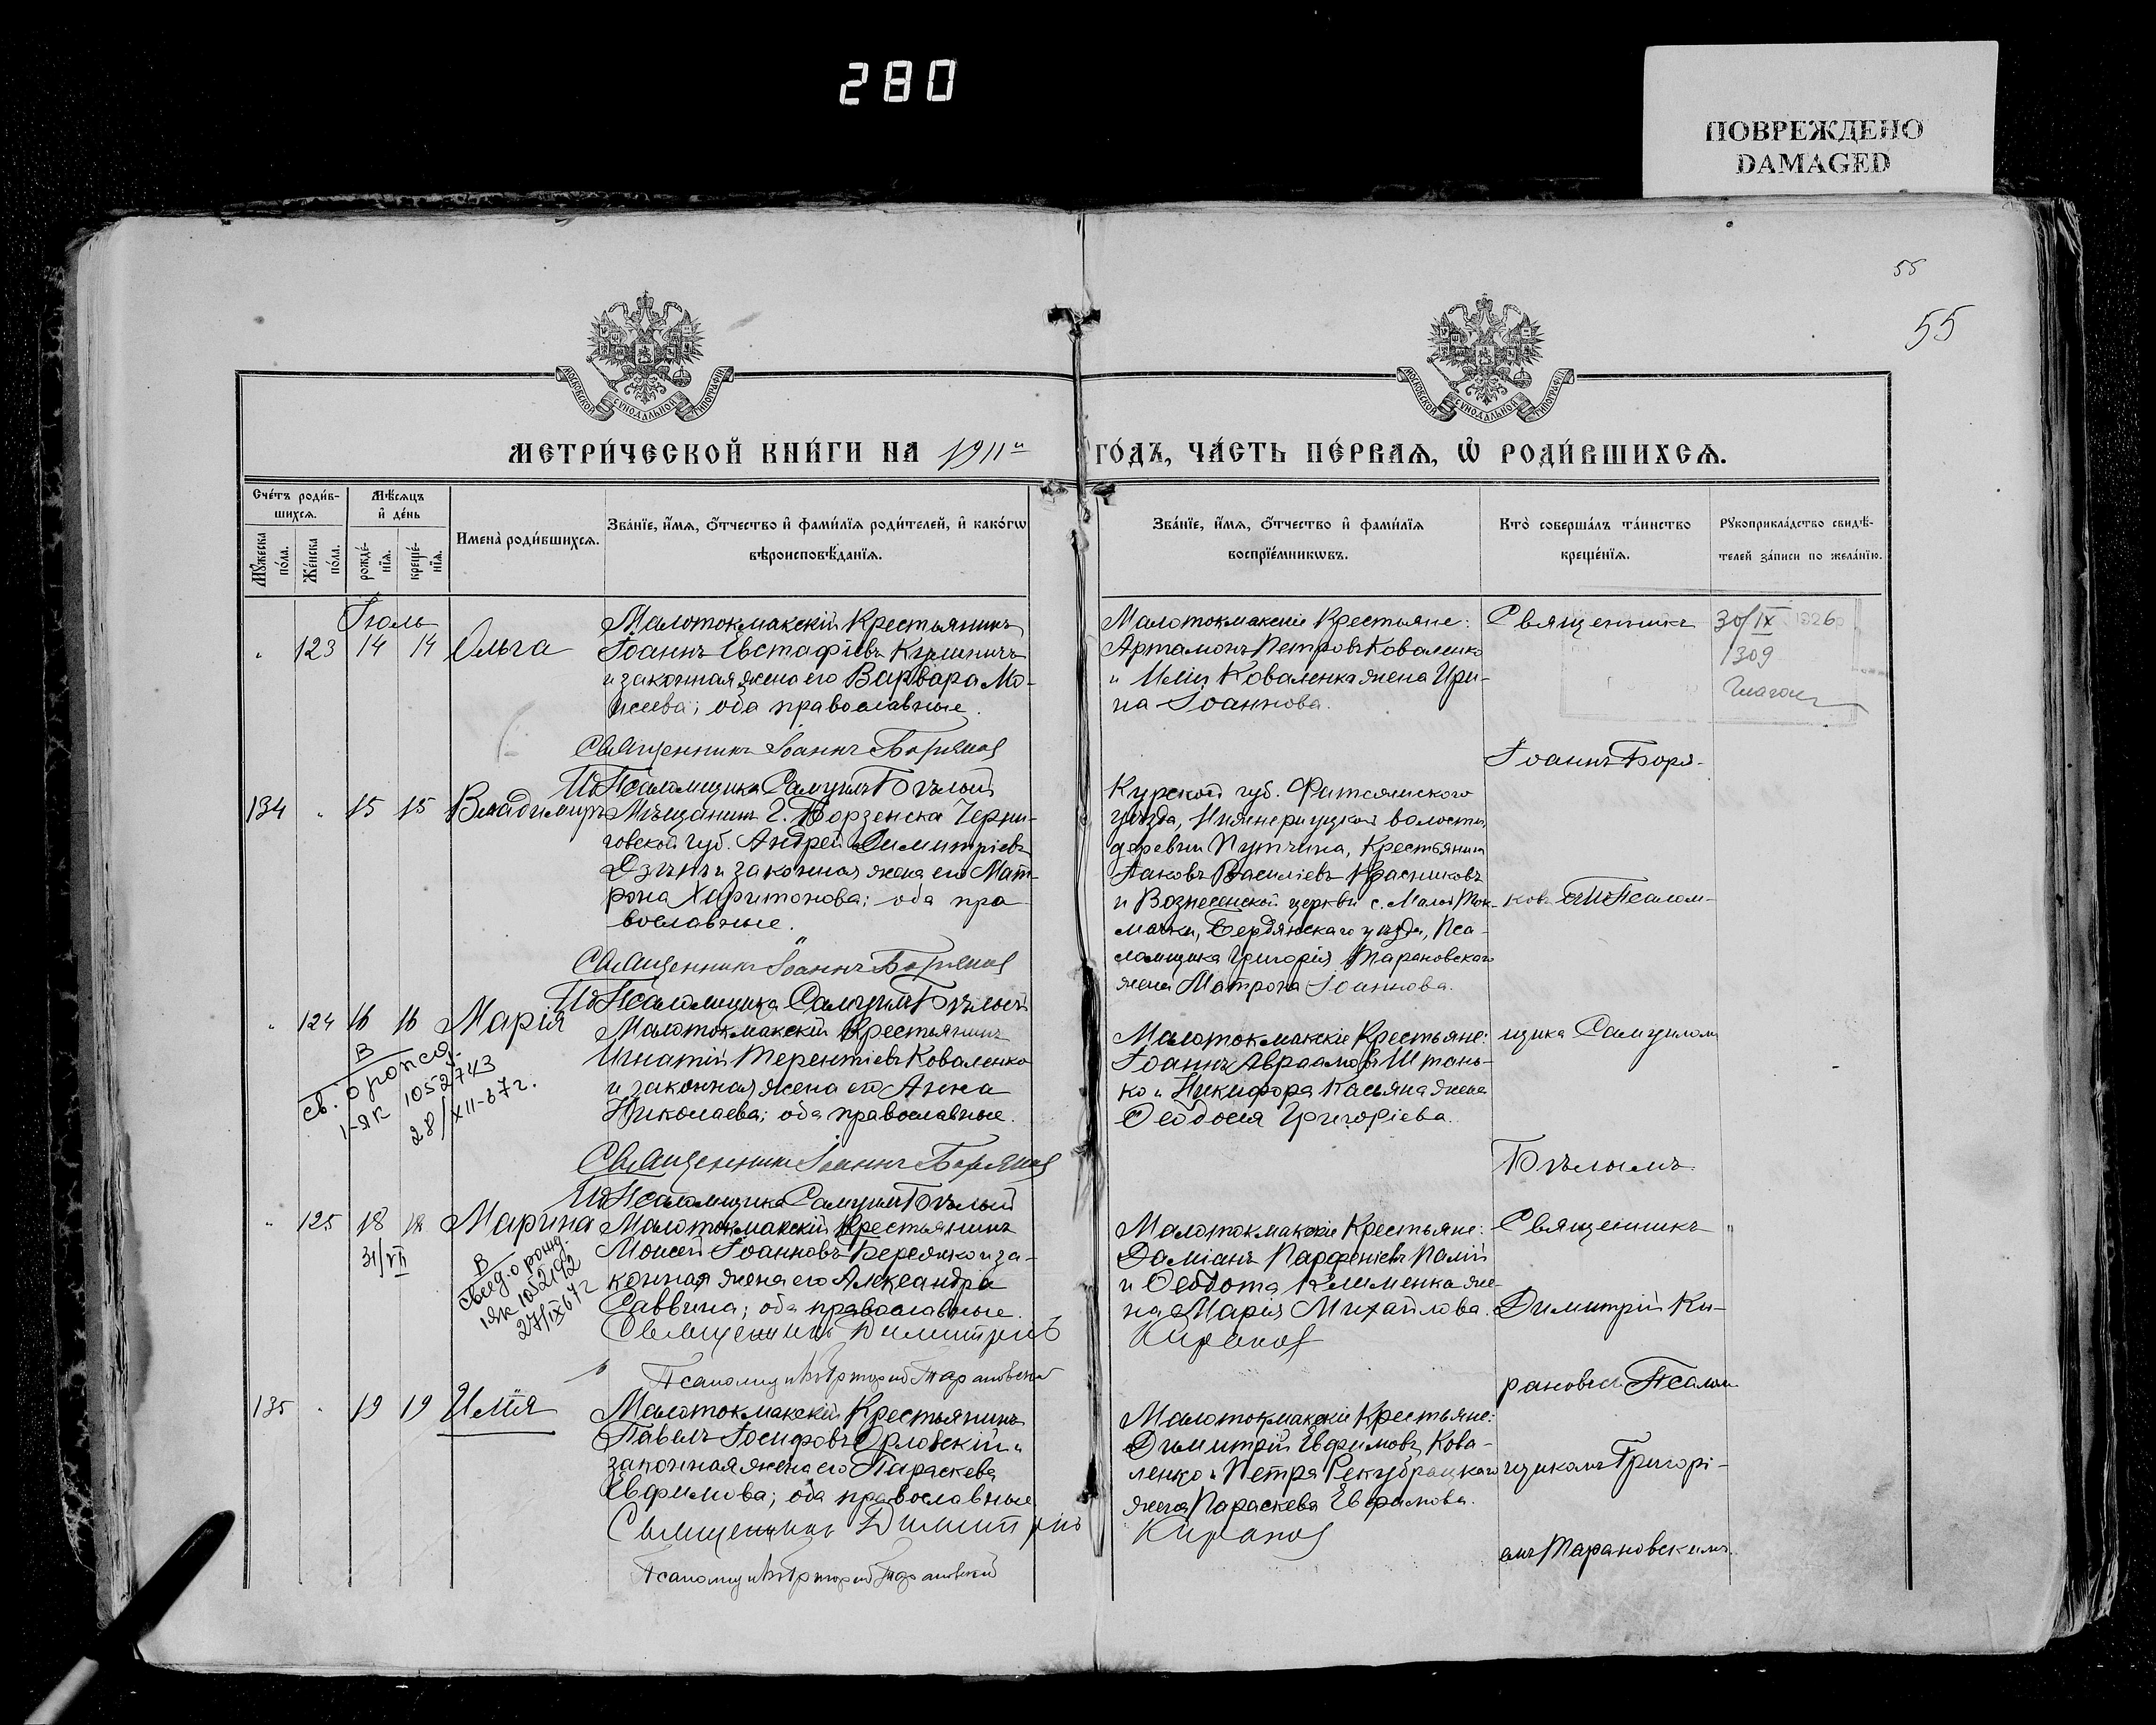 280
ПОВРЕЖДЕНО
DAMAGED
55
55
МОСКОВСКОЙ СѴНОДАЛЬНОЙ ТИПОГРАФІИ
МОСКОВСКОЙ СѴНОДАЛЬНОЙ ТИПОГРАФІИ
МЕТРИ́ЧЕСКОЙ КНИ́ГИ НА 1911й ГО́ДЪ, ЧА́СТЬ ПЕ́РВАѦ, Ѡ҆ РОДИ́ВШИХСѦ.
Сче́тъ роди́в-
шихсѧ.
Мѣ́сѧцъ
и҆ де́нь
Мꙋ́жеска по́ла.
Же́нска по́ла.
рожде́-
нїѧ.
креще́-
нїѧ.
И҆мена̀ роди́вшихсѧ.
Зва́нїе, и҆́мѧ, ѻ҆́тчество и҆ фами́лїѧ роди́телей, и҆ како́гѡ
вѣроисповѣ́данїѧ.
Зва́нїе, и҆́мѧ, ѻ҆́тчество и҆ фами́лїѧ
воспрїе́мникѡвъ.
Кто̀ соверша́лъ та́инство
креще́нїѧ.
Рꙋкоприкла́дство свидѣ́-
телей за́писи по жела́нїю.
Іюль
" 123 14 14 Ольга
Малотокмакскій Крестьянинъ
Іоаннъ Евстафіевъ
и законная жена его Варвара Мо-
исеева; оба православные.
Священникъ Іоаннъ Боряков
ИдПсаломщика Самуилъ Бѣлый
Малотокмакскіе Крестьяне:
Артамонъ Петровъ Коваленко
и Иліи Коваленка жена Ири-
на Іоаннова.
Священникъ
Іоаннъ Боря-
30/IX 1926р
1309
134 " 15 15 Владимиръ
Мѣщанинъ г. Борзенска Черни-
говской губ. Андрей Димитріевъ
и законная жена его Мат-
рона Харитонова; оба пра-
вославные.
Священникъ Іоаннъ Боряков
ИдПсаломщика Самуилъ Бѣлый
Курской губ. Фатежского
уѣзда, Нижнереуцкой волости,
деревни Путчина, Крестьянинъ
Іаковъ Василіевъ Красниковъ
и Вознесенской церкви с. Малой Ток-
мачки, Бердянскаго уѣзда, Пса-
ломщика Григорія Тарановскаго
жена Матрона Іоаннова.
ковъ съ ИдПсалом-
" 124 16 16 Марія
В
св. о рожд.
I-ЯК 1052743
28/XII-67г.
Малотокмакскій Крестьянинъ
Игнатій Терентіевъ Коваленко
и законная жена его Анна
Николаева; оба православные.
Священникъ Іоаннъ Боряков
ИдПсаломщика Самуилъ Бѣлый
Малотокмакскіе Крестьяне:
Іоаннъ Авраамовъ Штань-
ко и Никифора Касьяна жена
Ѳеодосія Григоріева.
щика Самуиломъ
Бѣлымъ
" 125 18 18 Марина
31/VII
В
свед. о рожд.
IЯК 1052192
27/IX67г
Малотокмакскій Крестьянинъ
Моисей Іоанновъ Бережко и за-
конная жена его Александра
Саввина; оба православные.
Священникъ Димитрій Киранов
Псаломщикъ Григорий Тарановский
Малотокмакскіе Крестьяне:
Даміанъ Парфеніевъ Палій
и Ѳеодота Клименка же-
на Марія Михайлова.
Священникъ
Димитрій Ки-
рановъ съ Псалом-
135 " 19 19 Илія
Малотокмакскій Крестьянинъ
Павелъ Іосифовъ Орловскій и
законная жена его Параскева
Евфимова; оба православные
Священникъ Димитрій Киранов
Псаломщикъ Григорий Тарановский
Малотокмакскіе Крестьяне:
Димитрій Евфимовъ Кова-
ленко и Петра Рекубрацкаго
жена Параскева Евфимова.
щикомъ Григорі-
емъ Тарановскимъ.